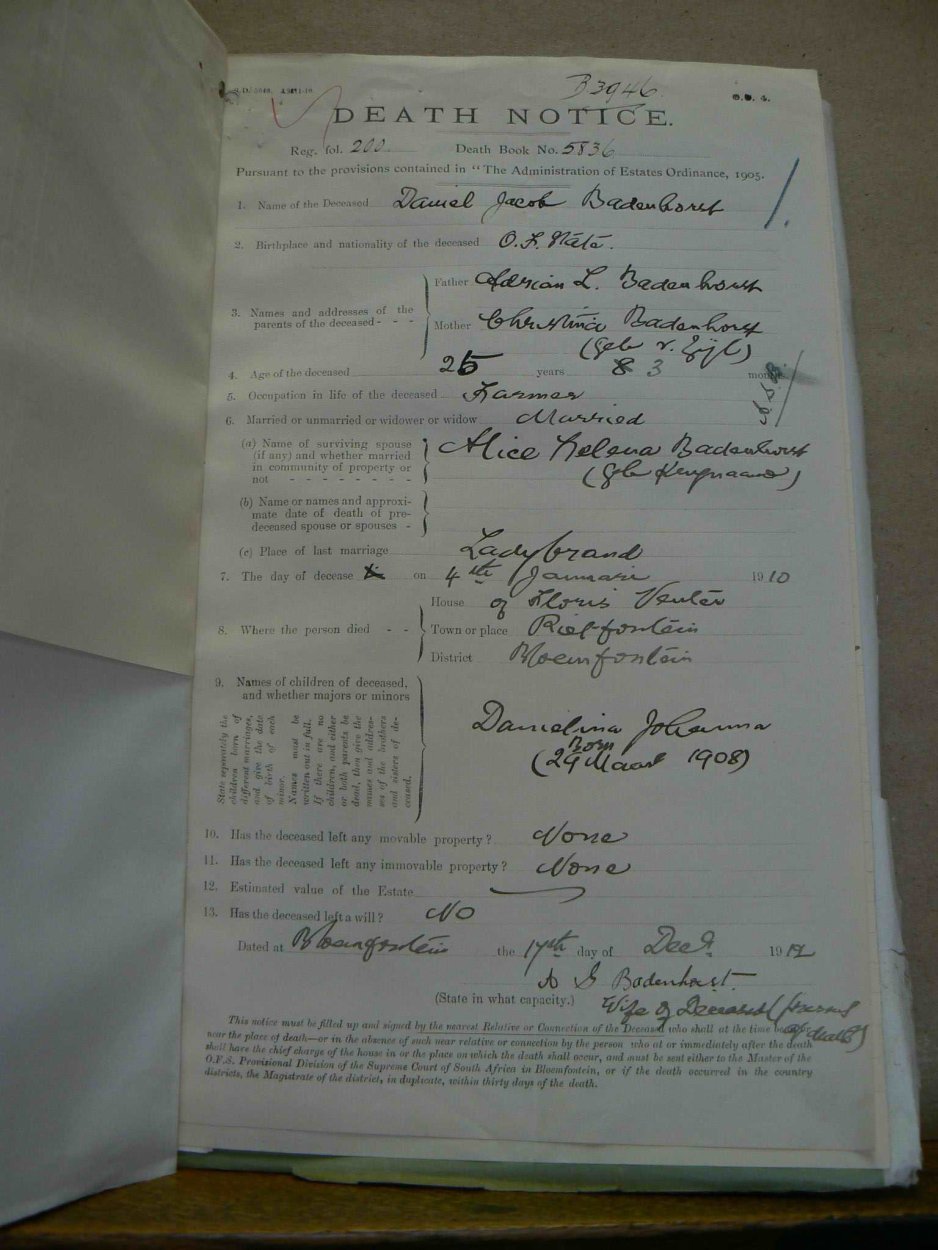 B3946
DEATH NOTICE.
Reg. fol. 200 Death Book No. 5836
Pursuant to the provisions contained in "The Administration of Estates Ordinance, 1905.
1. Name of the Deceased Daniel Jacob Badenhorst
2. Birthplace and nationality of the deceased O.F. State.
Father Adrian L. Badenhorst
3. Names and addresses of the
parents of the deceased - - -
Mother Christina Badenhorst
(geb v. Zijl)
4. Age of the deceased 25 years 3 months
5. Occupation in life of the deceased Farmer
6. Married or unmarried or widower or widow Married
(a) Name of surviving spouse
(if any) and whether married
in community of property or
not - - - - - - - -
Alice Helena Badenhorst
(geb
(b) Name or names and approxi-
mate date of death of pre-
deceased spouse or spouses -
(c) Place of last marriage Ladybrand
7. The day of decease on 4th Januari 1910
8. Where the person died - -
House of Floris Venter
Town or place Rietfontein
District Bloemfontein
9. Names of children of deceased,
and whether majors or minors
State separately the
children born of
different marriages,
and give the date
of birth of each
minor.
Names must be
written out in full.
If there are no
children, and either
or both parents be
dead, then give the
names and address-
es of the brothers
and sisters of de-
ceased.
Danielina Johanna
Born
(29 Maart 1908)
10. Has the deceased left any movable property? None
11. Has the deceased left any immovable property? None
12. Estimated value of the Estate
13. Has the deceased left a will? No
Dated at Bloemfontein the 17th day of Decr 1912
A S Badenhorst.
(State in what capacity.) Wife of Deceased (present
of death)
This notice must be filled up and signed by the nearest Relative or Connection of the Deceased who shall at the time be at or
near the place of death—or in the absence of such near relative or connection by the person who at or immediately after the death
shall have the chief charge of the house in or the place on which the death shall occur, and must be sent either to the Master of the
O.F.S. Provisional Division of the Supreme Court of South Africa in Bloemfontein, or if the death occurred in the country
districts, the Magistrate of the district, in duplicate, within thirty days of the death.